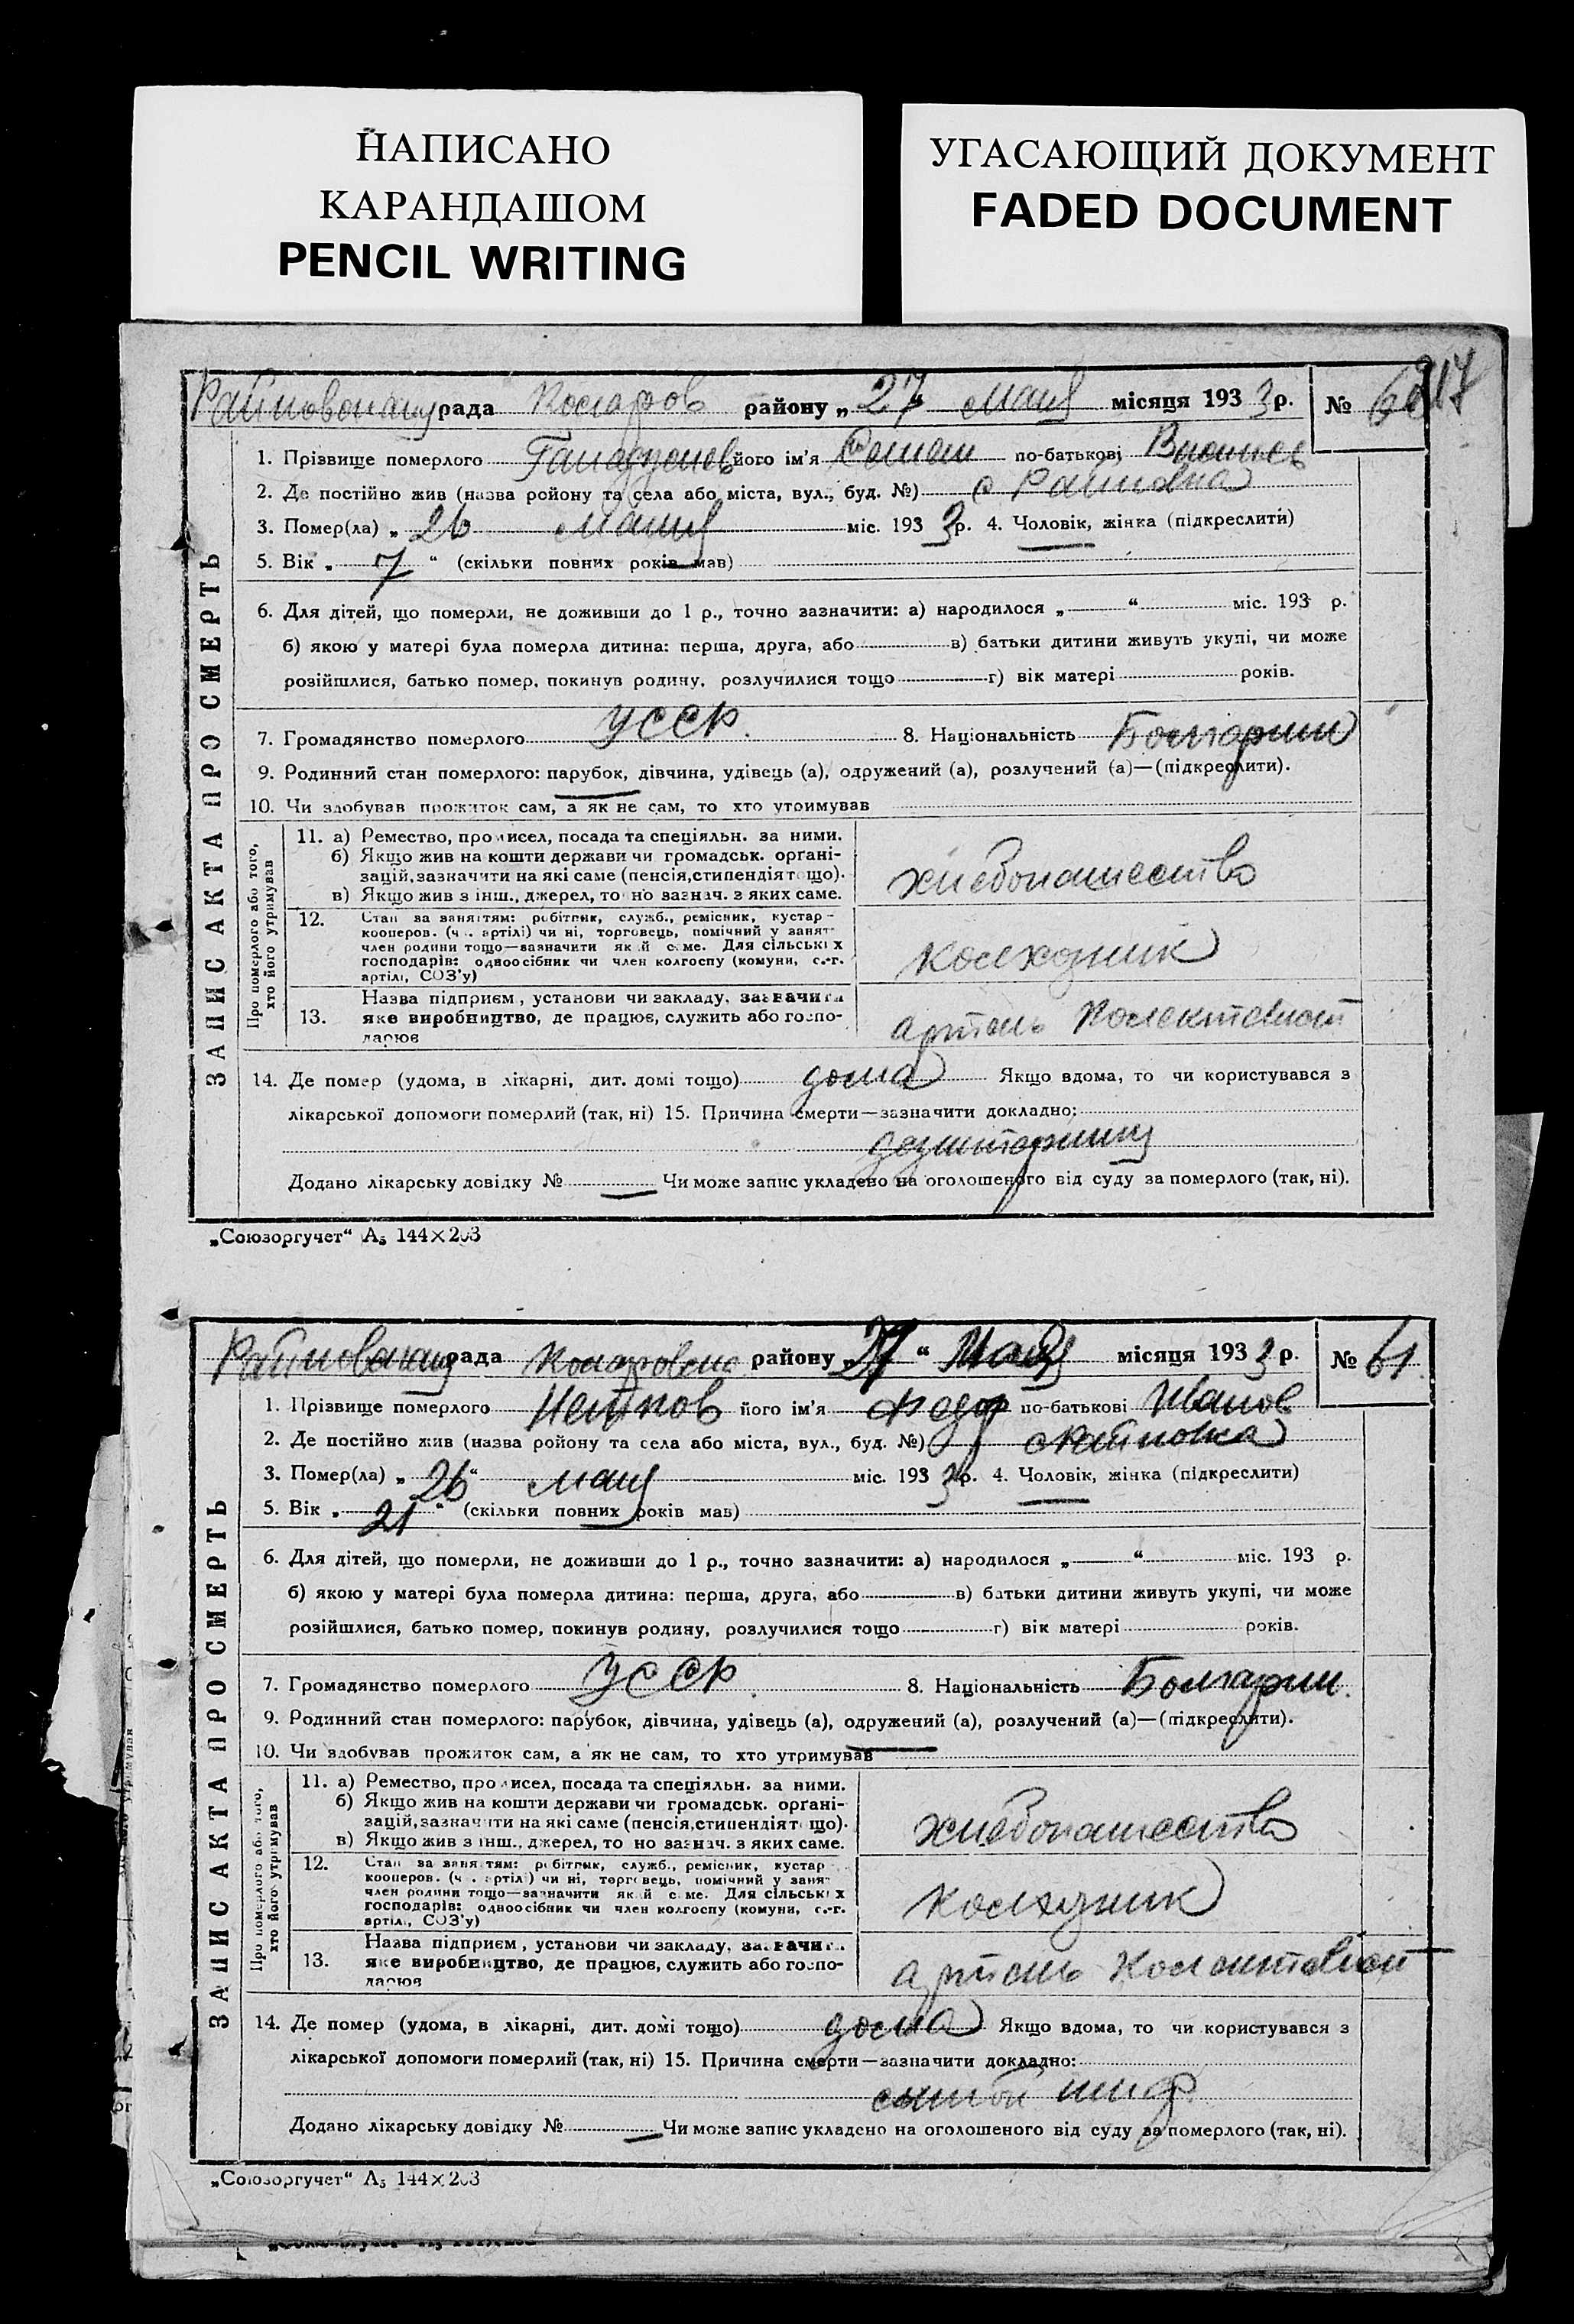 НАПИСАНО
КАРАНДАШОМ
PENCIL WRITING
УГАСАЮЩИЙ ДОКУМЕНТ
FADED DOCUMENT
рада района „ 27 “ мая місяця 193 3 р. №
ЗАПИС АКТА ПРО СМЕРТЬ
1. Прізвище померлого його ім'я по-батькові
2. Де постійно жив (назва ройону та села або міста, вул., буд. №) с Райновка
3. Помер(ла) „ 26 мая міс. 193 3 р. 4. Чоловік, жінка (підкреслити)
5. Вік „ 7 “ (скільки повних років мав)
6. Для дітей, що померли, не доживши до 1 р., точно зазначити: а) народилося „ “ міс. 193 р.
б) якою у матері була померла дитина: перша, друга, або в) батьки дитини живуть укупі, чи може
розійшлися, батько помер, покинув родину, розлучилися тощо г) вік матері років.
7. Громадянство померлого УССР. 8. Національність Болгарин
9. Родинний стан померлого: парубок, дівчина, удівець (а), одружений (а), розлучений (а)—(підкреслити).
10. Чи здобував прожиток сам, а як не сам, то хто утримував
Про померлого або того,
хто його утримував
11. а) Ремество, промисел, посада та спеціяльн. за ними.
б) Якщо жив на кошти держави чи громадськ. органі-
зацій, зазначити на які саме (пенсія, стипендія тощо).
в) Якщо жив з інш., джерел, то но зазнач. з яких саме.
хлебопашество
12. Стан за заняттям: робітник, служб., ремісник, кустар-
кооперов. (чл. артілі) чи ні, торговець, помічний у занят-
член родини тощо—зазначити який саме. Для сільських
господарів: одноосібник чи член колгоспу (комуни, с.-г.
артілі, СОЗ'у)
колхозник
13. Назва підприєм, установи чи закладу, зазначити
яке виробництво, де працює, служить або госпо-
дарює
артель
14. Де помер (удома, в лікарні, дит. домі тощо) дома Якщо вдома, то чи користувався з
лікарської допомоги померлий (так, ні) 15. Причина смерти—зазначити докладно:
Додано лікарську довідку № — Чи може запис укладено на оголошеного від суду за померлого (так, ні).
„Союзоргучет“ А₅ 144×203
рада району „ 27 “ Мая місяця 193 3 р. № 61
ЗАПИС АКТА ПРО СМЕРТЬ
1. Прізвище померлого Нейков його ім'я Федор по-батькові Иванов
2. Де постійно жив (назва ройону та села або міста, вул., буд. №) с Райновка
3. Помер(ла) „ 26 “ мая міс. 193 3 р. 4. Чоловік, жінка (підкреслити)
5. Вік „ 21 “ (скільки повних років мав)
6. Для дітей, що померли, не доживши до 1 р., точно зазначити: а) народилося „ “ міс. 193 р.
б) якою у матері була померла дитина: перша, друга, або в) батьки дитини живуть укупі, чи може
розійшлися, батько помер, покинув родину, розлучилися тощо г) вік матері років.
7. Громадянство померлого УССР. 8. Національність Болгарин.
9. Родинний стан померлого: парубок, дівчина, удівець (а), одружений (а), розлучений (а)—(підкреслити).
10. Чи здобував прожиток сам, а як не сам, то хто утримував
Про померлого або того,
хто його утримував
11. а) Ремество, промисел, посада та спеціяльн. за ними.
б) Якщо жив на кошти держави чи громадськ. органі-
зацій, зазначити на які саме (пенсія, стипендія тощо).
в) Якщо жив з інш., джерел, то но зазнач. з яких саме.
хлебопашество
12. Стан за заняттям: робітник, служб., ремісник, кустар
кооперов. (чл. артілі) чи ні, торговець, помічний у занят-
член родини тощо—зазначити який саме. Для сільських
господарів: одноосібник чи член колгоспу (комуни, с.-г.
артілі, СОЗ'у)
колхозник
13. Назва підприєм, установи чи закладу, зазначити
яке виробництво, де працює, служить або госпо-
дарює
артель
14. Де помер (удома, в лікарні, дит. домі тощо) дома Якщо вдома, то чи користувався з
лікарської допомоги померлий (так, ні) 15. Причина смерти—зазначити докладно:
тиф.
Додано лікарську довідку № — Чи може запис укладено на оголошеного від суду за померлого (так, ні).
„Союзоргучет“ А₅ 144×203